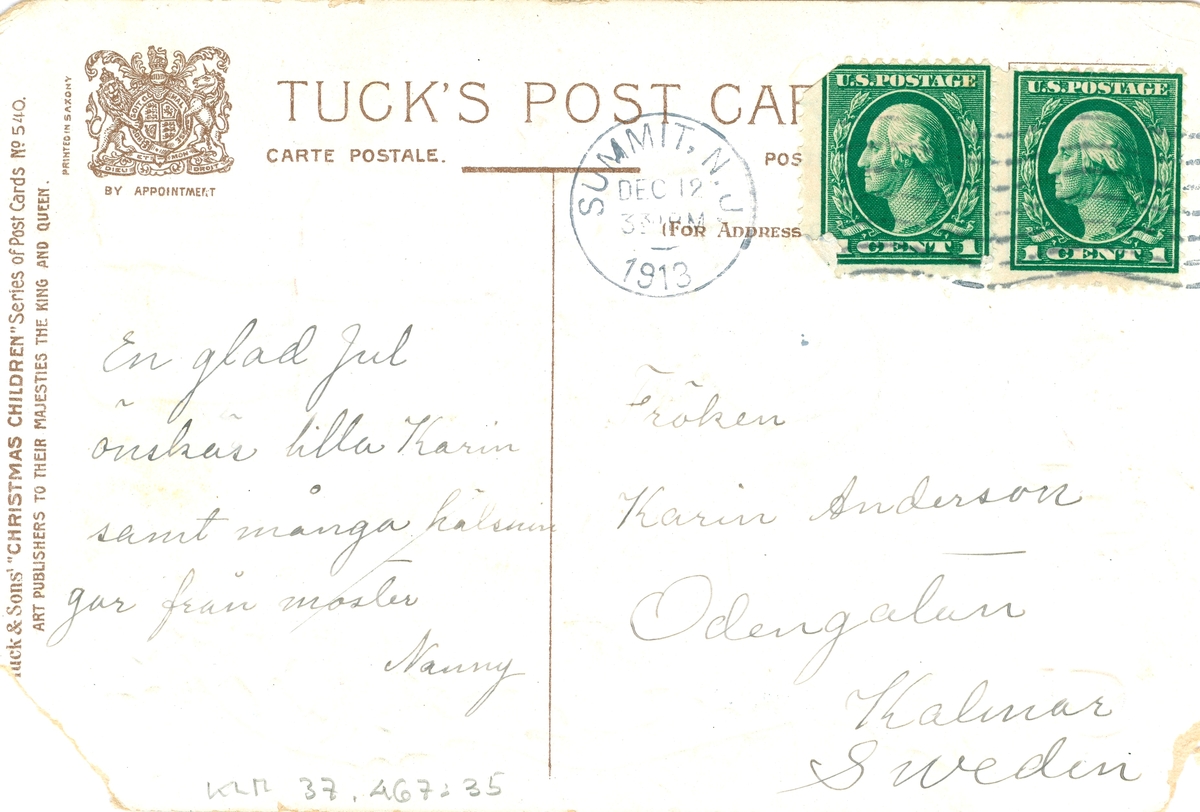 TUCK'S POST CAR
CARTE POSTALE.
POS
(FOR ADDRESS
BY APPOINTMENT
PRINTED IN SAXONY
Tuck & Sons' "CHRISTMAS CHILDREN" Series of Post Cards No 540.
ART PUBLISHERS TO THEIR MAJESTIES THE KING AND QUEEN.
DIEU ET MON DROIT
SUMMIT, N.J.
DEC 12
1913
U.S. POSTAGE
1 CENT 1
U.S. POSTAGE
1 CENT 1
En glad Jul
önskas lilla Karin
samt många hälsnin
gar från moster
Nanny
Fröken
Karin Anderson
Odengatan
Kalmar
Sweden
KLM 37.467:35